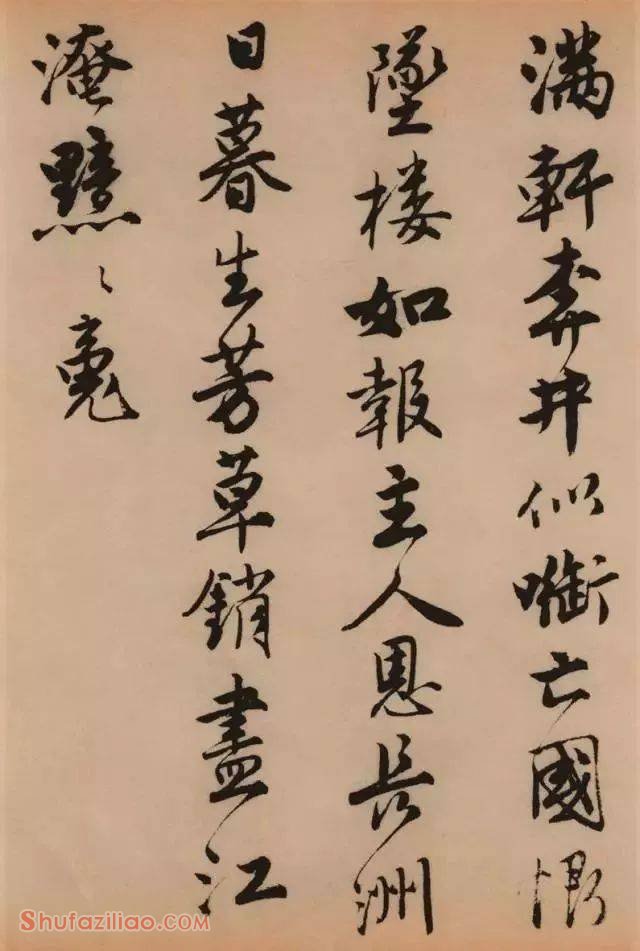 滿軒奔井似㘅亡國恨
墜楼如報主人恩長洲
日暮生芳草銷盡江
淹黯〻魂
Shufaziliao.COM